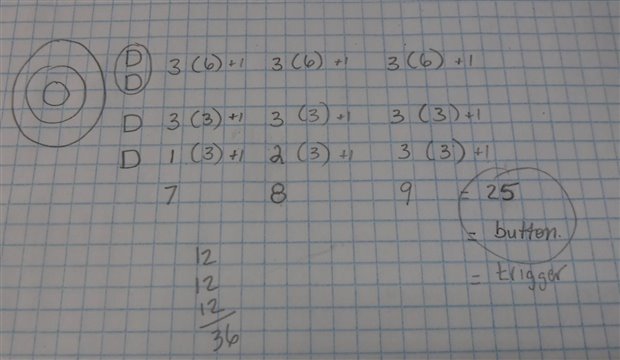 D 3 (6) +1 3 (6) +1 3 (6) +1
D
D 3 (3) +1 3 (3) +1 3 (3) +1
D 1 (3) +1 2 (3) +1 3 (3) +1
7 8 9 = 25
= button.
= trigger
12
12
12
36